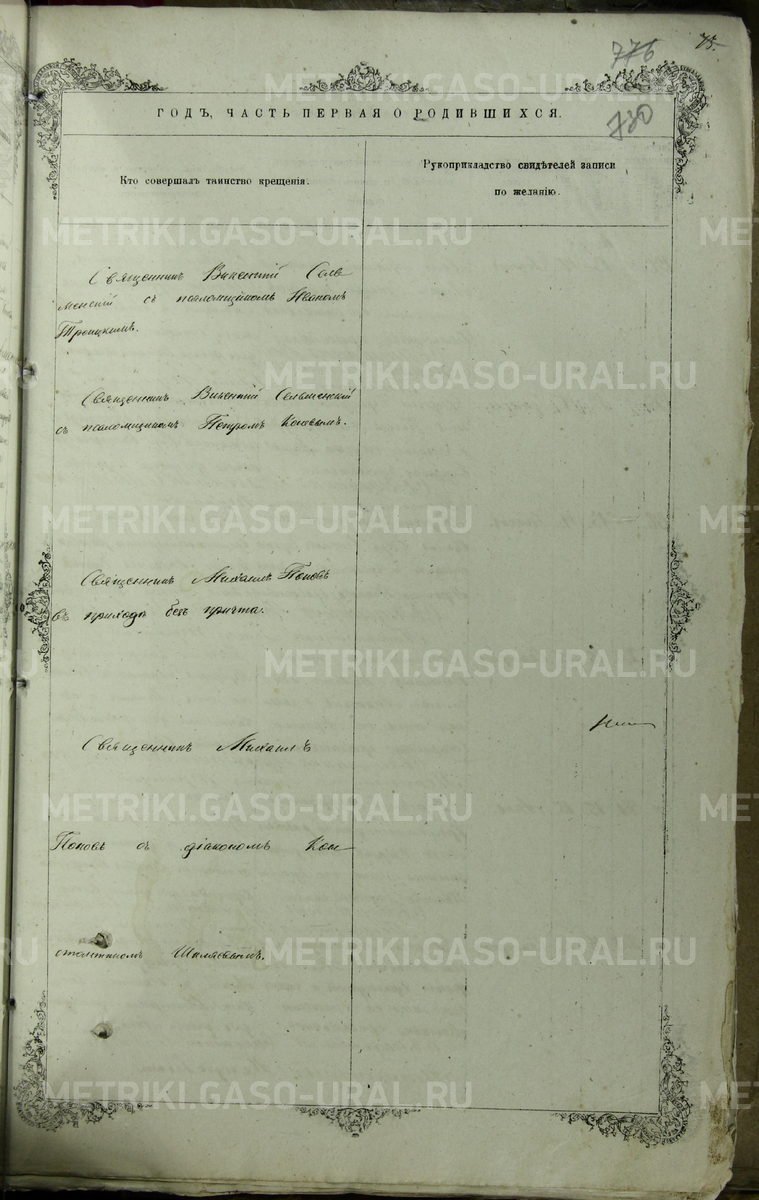 75
776
780
ГОДЪ, ЧАСТЬ ПЕРВАЯ О РОДИВШИХСЯ.
Кто совершалъ таинство крещенія.
Рукоприкладство свидѣтелей записи
по желанію.
Священникъ Викентій Сель
менскій съ псаломщикомъ Иваномъ
Троицкимъ.
Священникъ Викентій Сельменскій
съ псаломщикомъ Петромъ
Священникъ Михаилъ Поповъ
въ приходѣ безъ причта.
Священникъ Михаилъ
Поповъ съ діакономъ Кон
стантиномъ
METRIKI.GASO-URAL.RU